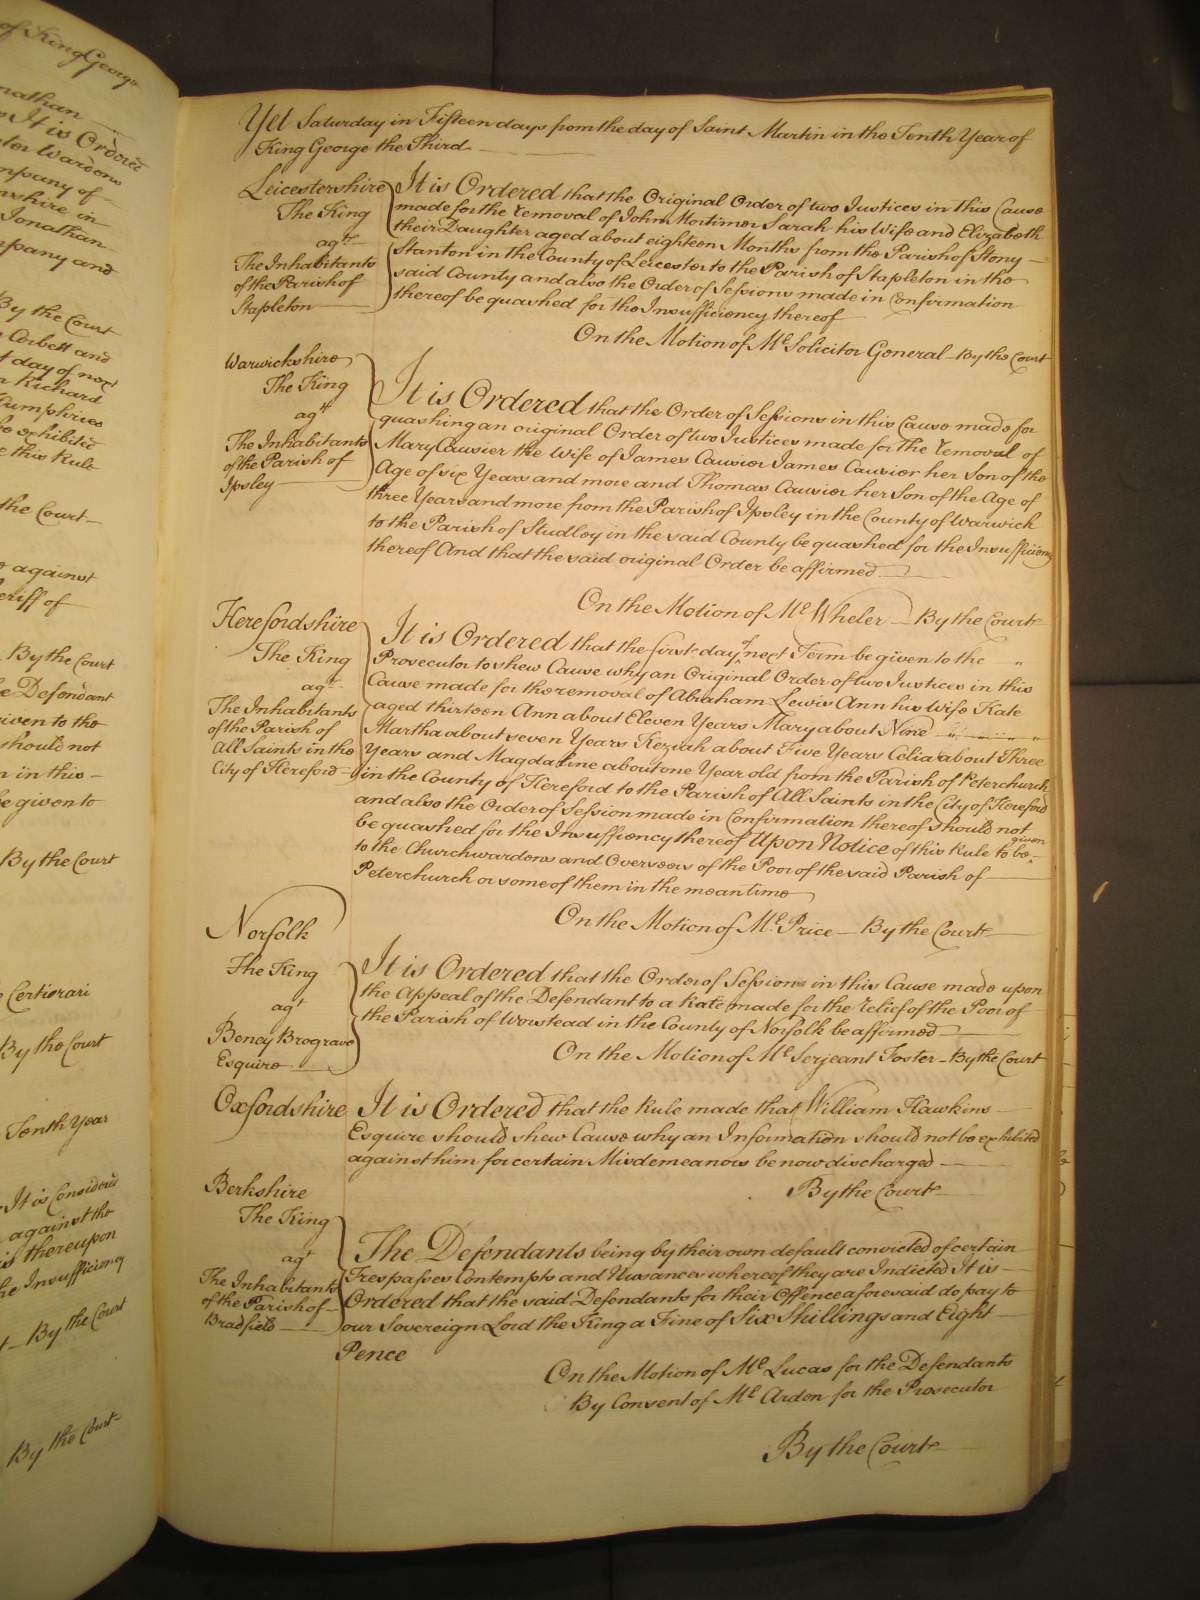 of King George
nathan
It is Ordered
Wardens
mpany of
nshire in
Jonathan
mpany and
By the Court
Corbett and
day of next
Richard
Humphries
be exhibited
this Rule
the Court
against
eriff of
By the Court
Defendant
given to the
should not
in this
be given to
By the Court
Certiorari
By the Court
Tenth Year
It is Considered
against the
is thereupon
the Insufficiency
By the Court
By the Court
Yet Saturday in Fifteen days from the day of Saint Martin in the Tenth Year of
King George the Third
Leicestershire
The King
agt
The Inhabitants
of the Parish of
Stapleton
It is Ordered that the Original Order of two Justices in this Cause
made for the removal of John Mortimer Sarah his Wife and Elizabeth
their Daughter aged about eighteen Months from the Parish of Stony
Stanton in the County of Leicester to the Parish of Stapleton in the
said County and also the Order of Sessions made in Confirmation
thereof be quashed for the Insufficiency thereof
On the Motion of Mr Solicitor General By the Court
Warwickshire
The King
agt
The Inhabitants
of the Parish of
Ipsley
It is Ordered that the Order of Sessions in this Cause made for
quashing an original Order of two Justices made for the removal of
Mary Causier the Wife of James Causier James Causier her Son of the
Age of six Years and more and Thomas Causier her Son of the Age of
three Years and more from the Parish of Ipsley in the County of Warwick
to the Parish of Studley in the said County be quashed for the Insufficiency
thereof And that the said original Order be affirmed
On the Motion of Mr Wheler By the Court
Herefordshire
The King
agt
The Inhabitants
of the Parish of
All Saints in the
City of Hereford
It is Ordered that the first day of next Term be given to the
Prosecutor to shew Cause why an Original Order of two Justices in this
Cause made for the removal of Abraham Lewis Ann his Wife Kate
aged thirteen Ann about Eleven Years Mary about Nine
Martha about seven Years Keziah about Five Years Celia about Three
Years and Magdaline about one Year old from the Parish of Peterchurch
in the County of Hereford to the Parish of All Saints in the City of Hereford
and also the Order of Session made in Confirmation thereof should not
be quashed for the Insuffiency thereof Upon Notice of this Rule to be given
to the Churchwardens and Overseers of the Poor of the said Parish of
Peterchurch or some of them in the mean time
On the Motion of Mr Price By the Court
Norfolk
The King
agt
Beney Brograve
Esquire
It is Ordered that the Order of Sessions in this Cause made upon
the Appeal of the Defendant to a Rate made for the relief of the Poor of
the Parish of Worstead in the County of Norfolk be affirmed
On the Motion of Mr Serjeant Foster By the Court
Oxfordshire
It is Ordered that the Rule made that William Hawkins
Esquire should shew Cause why an Information should not be exhibited
against him for certain Misdemeanors be now discharged
By the Court
Berkshire
The King
agt
The Inhabitants
of the Parish of
Bradfield
The Defendants being by their own default convicted of certain
Trespasses Contempts and Nusances whereof they are Indicted It is
Ordered that the said Defendants for their Offence aforesaid do pay to
our Sovereign Lord the King a Fine of Six Shillings and Eight
Pence
On the Motion of Mr Lucas for the Defendants
By Consent of Mr Arden for the Prosecutor
By the Court